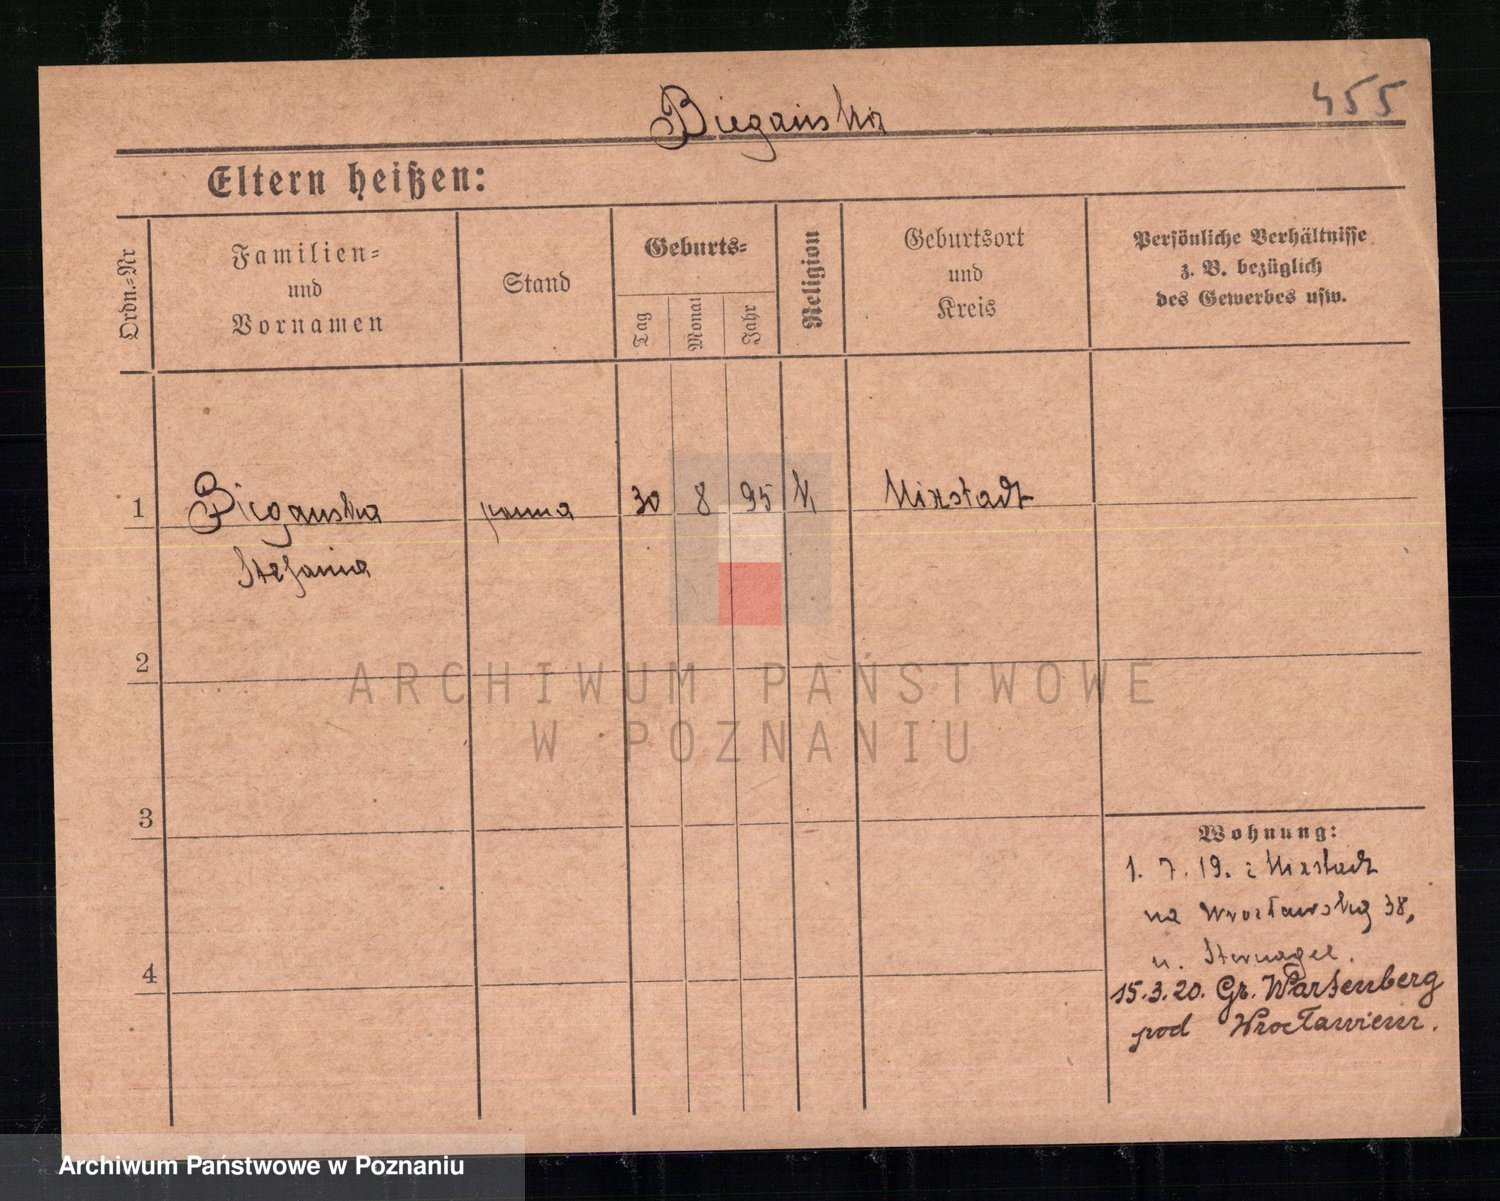 Biegańska
455
Eltern heißen:
Ordn.-Nr
Familien-
und
Vornamen
Stand
Geburts-
Tag
Monat
Jahr
Religion
Geburtsort
und
Kreis
Persönliche Verhältnisse
z. B. bezüglich
des Gewerbes usw.
1 Biegańska panna 30 8 95 k Mixstadt
Stefania
2
ARCHIWUM PAŃSTWOWE
W POZNANIU
3
Wohnung:
1. 7. 19. z Mixstadt
na Wrocławską 38,
u. Sternagel.
4
15.3.20. Gr. Wartenberg
pod Wrocławiem.
Archiwum Państwowe w Poznaniu